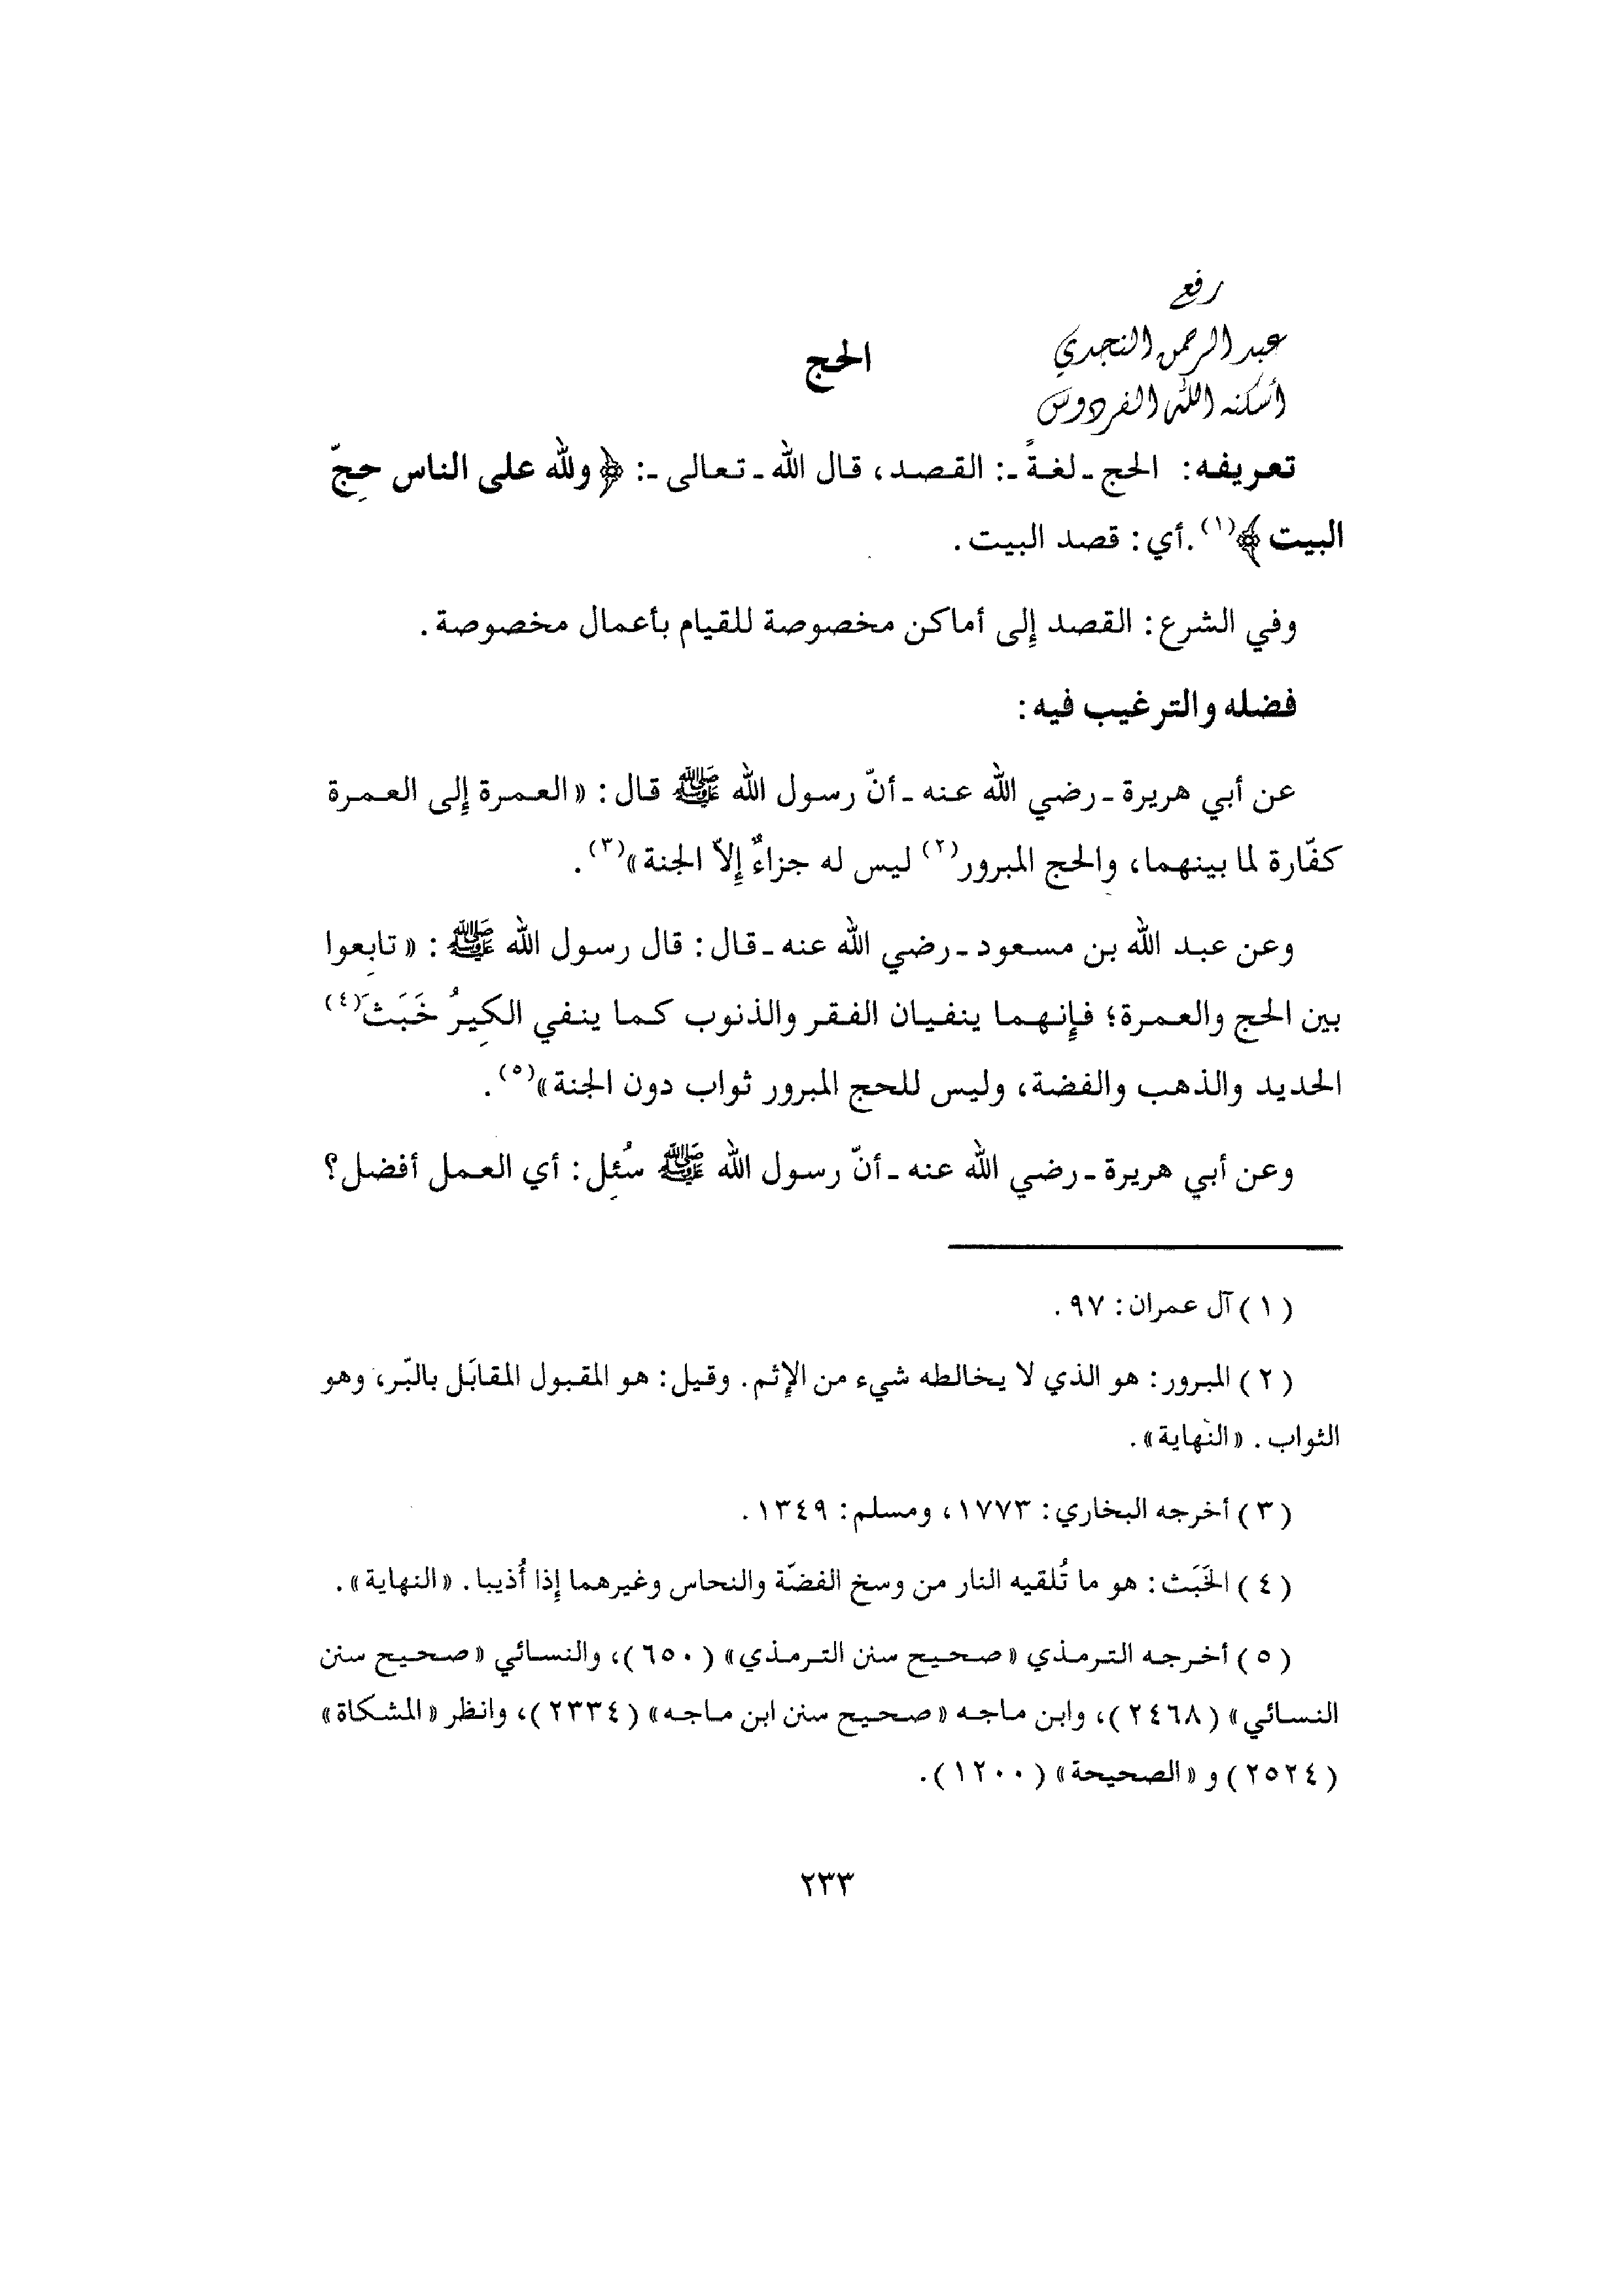 رفع
عبد الرحمن النجدي
أسكنه الله الفردوس
الحج
تعريفه: الحج ـ لغةً ـ: القصد، قال الله ـ تعالى ـ: ﴿ولله على الناس حِجّ
البيت﴾(١). أي: قصد البيت.
وفي الشرع: القصد إِلى أماكن مخصوصة للقيام بأعمال مخصوصة.
فضله والترغيب فيه:
عن أبي هريرة ـ رضي الله عنه ـ أنّ رسول الله ﷺ قال: «العمرة إِلى العمرة
كفّارة لما بينهما، والحج المبرور(٢) ليس له جزاءٌ إِلاّ الجنة»(٣).
وعن عبد الله بن مسعود ـ رضي الله عنه ـ قال: قال رسول الله ﷺ: «تابِعوا
بين الحج والعمرة؛ فإِنهما ينفيان الفقر والذنوب كما ينفي الكِيرُ خَبَثَ(٤)
الحديد والذهب والفضة، وليس للحج المبرور ثواب دون الجنة»(٥).
وعن أبي هريرة ـ رضي الله عنه ـ أنّ رسول الله ﷺ سُئِل: أي العمل أفضل؟
(١) آل عمران: ٩٧.
(٢) المبرور: هو الذي لا يخالطه شيء من الإِثم. وقيل: هو المقبول المقابَل بالبّر، وهو
الثواب. «النهاية».
(٣) أخرجه البخاري: ١٧٧٣، ومسلم: ١٣٤٩.
(٤) الخَبَث: هو ما تُلقيه النار من وسخ الفضّة والنحاس وغيرهما إِذا أُذيبا. «النهاية».
(٥) أخرجه الترمذي «صحيح سنن الترمذي» (٦٥٠)، والنسائي «صحيح سنن
النسائي» (٢٤٦٨)، وابن ماجه «صحيح سنن ابن ماجه» (٢٣٣٤)، وانظر «المشكاة»
(٢٥٢٤) و «الصحيحة» (١٢٠٠).
٢٣٣